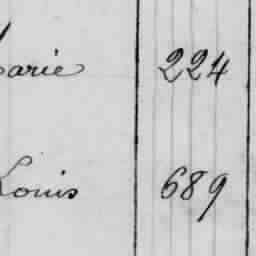 Marie 224
Louis 689